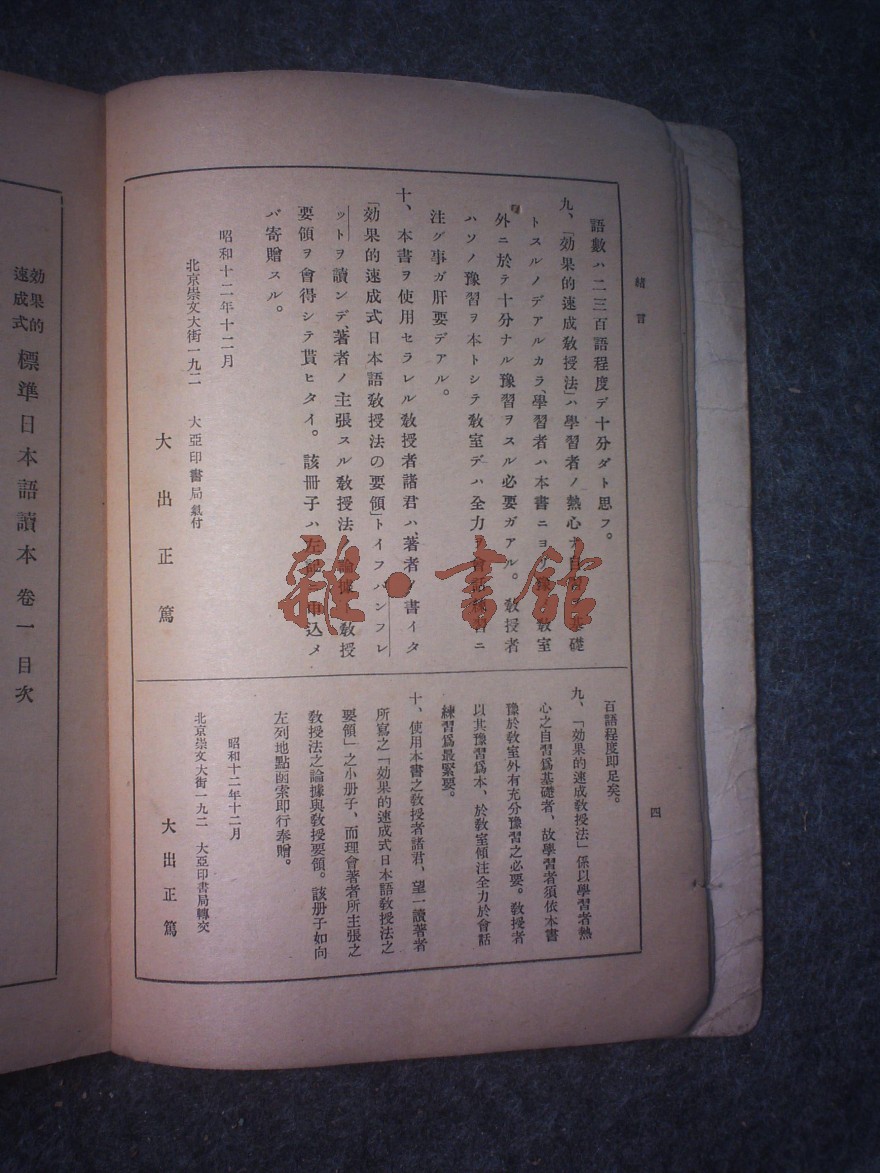 緒言
語數ハ二三百語程度デ十分ダト思フ。
九、「効果的速成敎授法」ハ學習者ノ熱心ナ自習ヲ基礎
トスルノデアルカラ、學習者ハ本書ニヨリ豫敎室
外ニ於テ十分ナル豫習ヲスル必要ガアル。敎授者
ハソノ豫習ヲ本トシテ敎室デハ全力ヲ會話練習ニ
注グ事ガ肝要デアル。
十、本書ヲ使用セラレル敎授者諸君ハ、著者ノ書イタ
「効果的速成式日本語敎授法の要領」トイフパンフレ
ットヲ讀ンデ、著者ノ主張スル敎授法論據敎授
要領ヲ會得シテ貰ヒタイ。該冊子ハ左記申込メ
バ寄贈スル。
昭和十二年十二月
北京崇文大街一九二 大亞印書局氣付
大出正篤
四
百語程度即足矣。
九、「効果的速成敎授法」係以學習者熱
心之自習爲基礎者、故學習者須依本書
豫於敎室外有充分豫習之必要。敎授者
以其豫習爲本、於敎室傾注全力於會話
練習爲最緊要。
十、使用本書之敎授者諸君、望一讀著者
所寫之「効果的速成式日本語敎授法之
要領」之小册子、而理會著者所主張之
敎授法之論據與敎授要領。該册子如向
左列地點函索即行奉贈。
昭和十二年十二月
北京崇文大街一九二 大亞印書局轉交
大出正篤
効果的
速成式 標準日本語讀本 卷一 目次
雜·書館